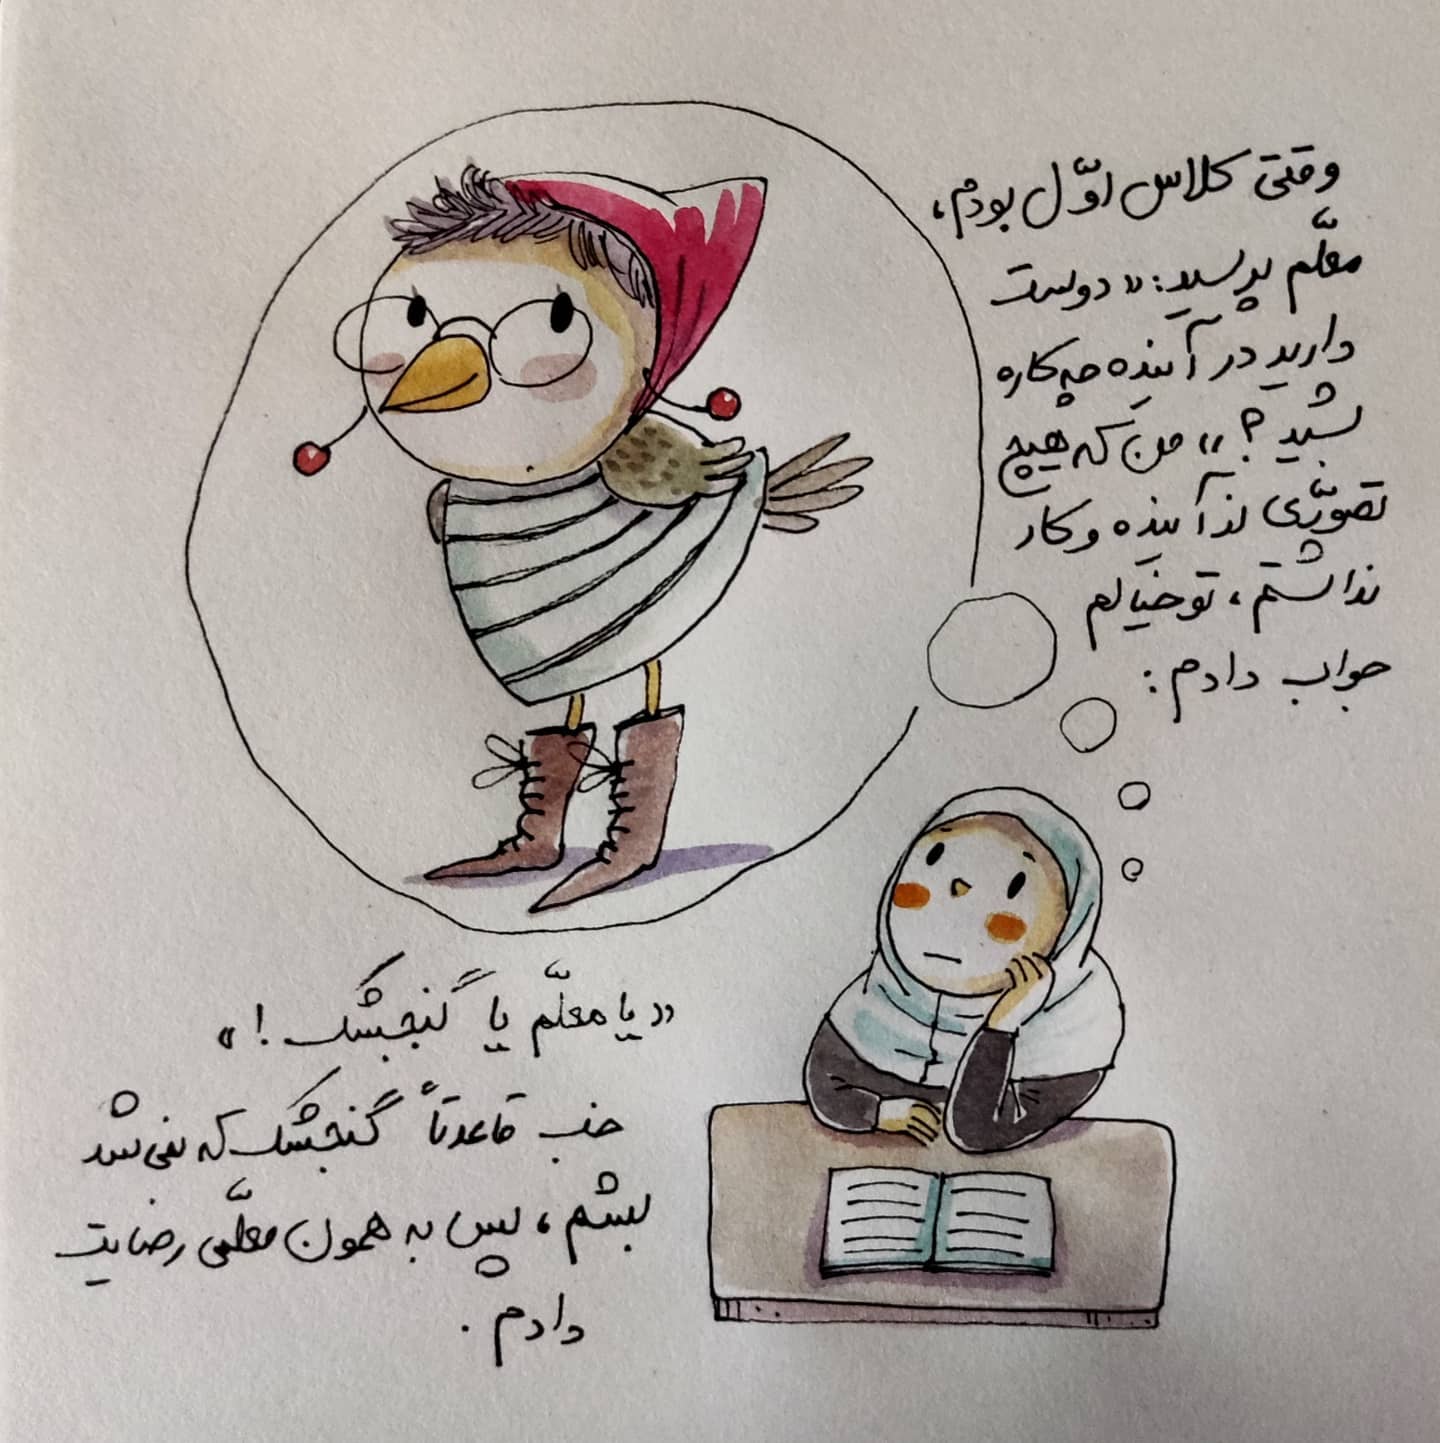 وقتی کلاس اوّل بودم،
معلّم پرسید: «دوست
دارید در آینده چه کاره
بشید؟» من که هیچ
تصوّری از آینده و کار
نداشتم، تو خیالم
جواب دادم:
«یا معلّم یا گنجشک!»
خب قاعدتاً گنجشک که نمی‌شد
بشم، پس به همون معلّمی رضایت
دادم.